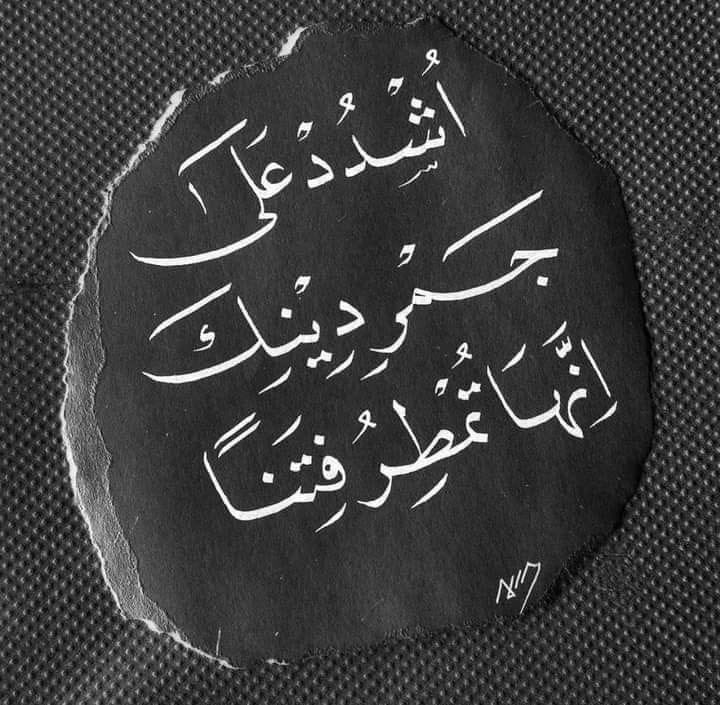 اُشْدُدْ عَلَى
جَمْرِ دِيْنِكَ
اِنَّهَا تُمْطِرُ فِتَنَاً